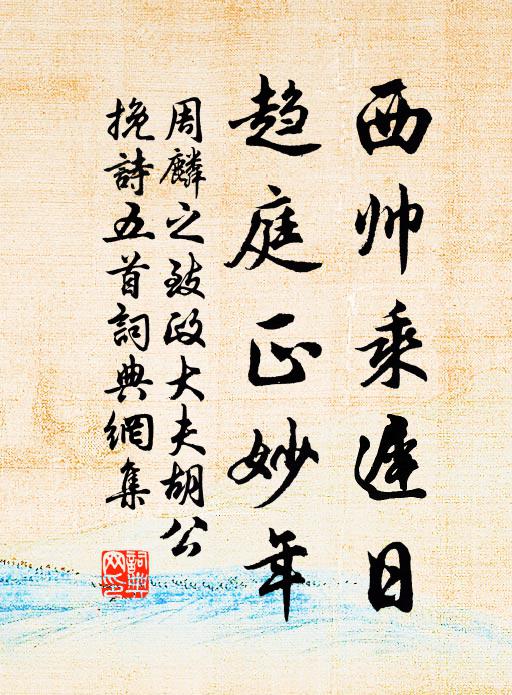 西帅乘遅日
趋庭正妙年
周麟之致政大夫胡公
挽詩五首詞典網集